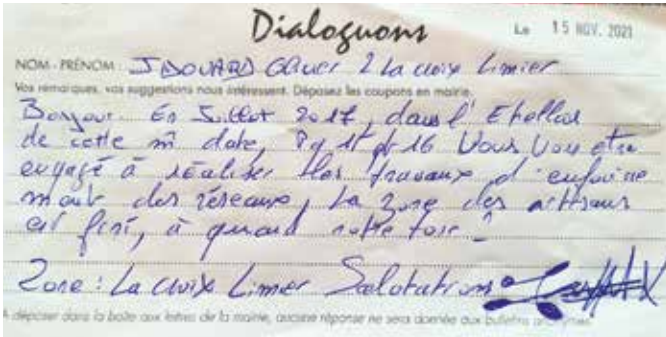 Dialoguons
Le 15 NOV. 2021
NOM - PRÉNOM : JDOUARD 2 La croix Limier
Vos remarques, vos suggestions nous intéressent. Déposez les coupons en mairie.
Bonjour. En Juillet 2017, dans l'
de cette m date, 16 Vous
engagé à réaliser des travaux d'enfouisse
ment des réseaux, La zone des artisans
est fini, à quand notre tour ?
Zone : La croix Limier Salutations
A déposer dans la boîte aux lettres de la mairie, aucune réponse ne sera donnée aux bulletins anonymes.